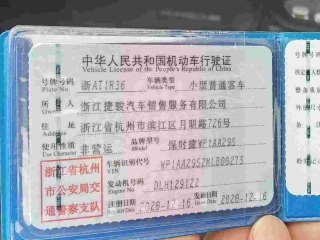 中华人民共和国机动车行驶证
Vehicle License of the People's Republic of China
号牌号码 浙A11R36 车辆类型 小型普通客车
Plate No. Vehicle Type
所有人 浙江捷骏汽车销售服务有限公司
Owner
住址 浙江省杭州市滨江区月明路726号
Address
使用性质 非营运 品牌型号 保时捷WP1AA295
Use Character Model
浙江省杭州
市公安局交
通警察支队
车辆识别代号
VIN
发动机号码 DLH129122
Engine No.
注册日期 2020-12-16 发证日期 2020-12-16
号牌
所有